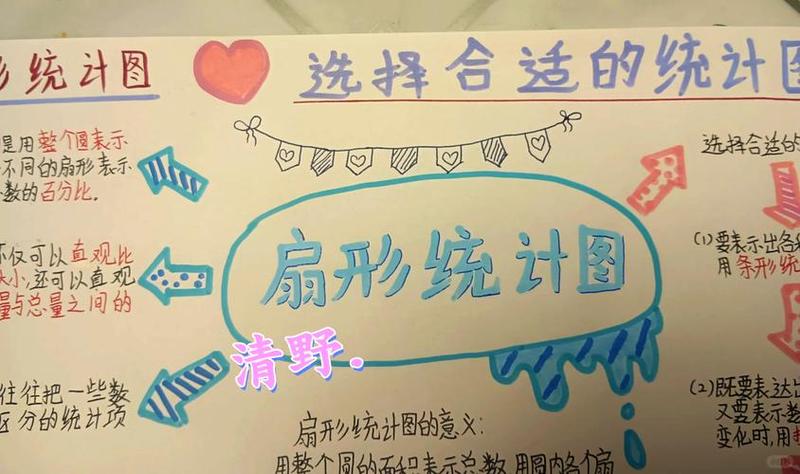 形统计图
选择合适的统计图
是用整个圆表示
不同的扇形表示
数的百分比.
不仅可以直观比
大小,还可以直观
量与总量之间的
往往把一些数
区分的统计项
扇形统计图
清野.
扇形统计图的意义:
用整个圆的面积表示总数,用圆内各个扇
选择合适的
(1)要表示出各
用条形统
(2)既要表达出
又要表示数
变化时,用